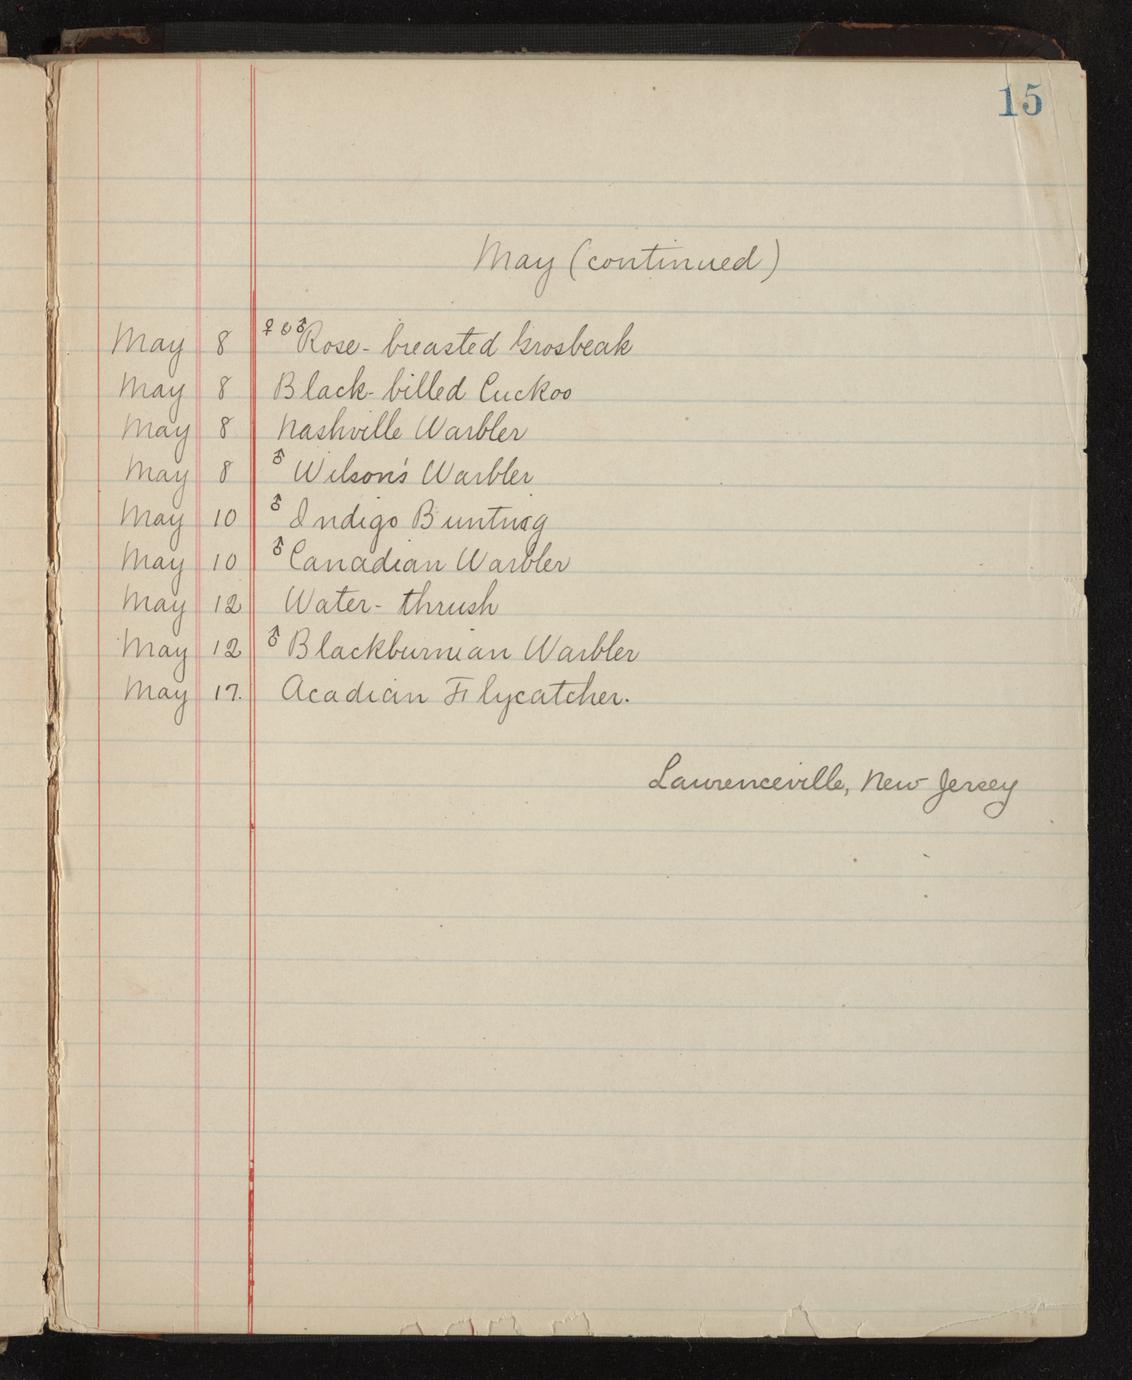 15
May (continued)
May 8 ♀ & ♂ Rose-breasted Grosbeak
May 8 Black-billed Cuckoo
May 8 Nashville Warbler
May 8 ♂ Wilson's Warbler
May 10 ♂ Indigo Bunting
May 10 ♂ Canadian Warbler
May 12 Water-thrush
May 12 ♂ Blackburnian Warbler
May 17. Acadian Flycatcher.
Lawrenceville, New Jersey